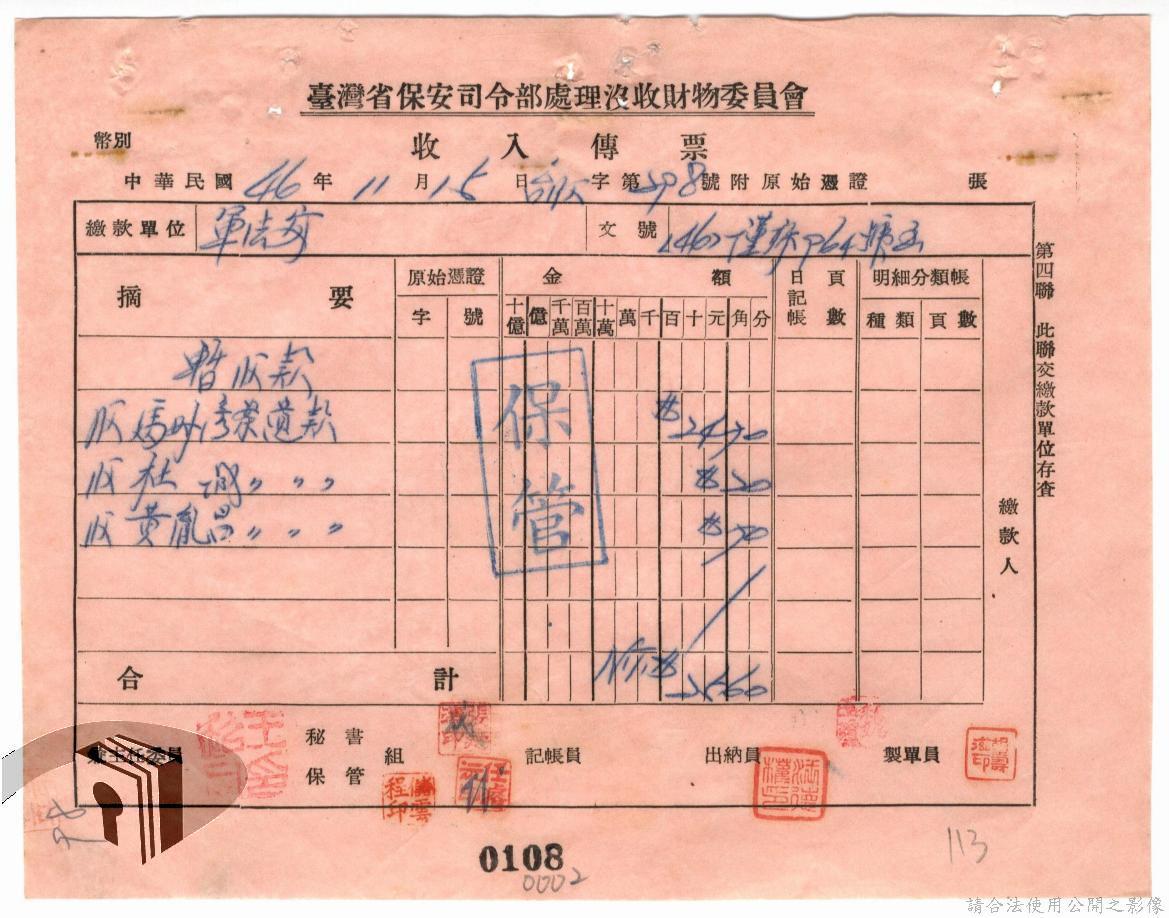 臺灣省保安司令部處理沒收財物委員會
幣別
收入傳票
中華民國46年11月15日 字第 98號附原始憑證 張
繳款單位 軍法 文號 (46)
摘要 原始憑證 金額 日記帳 頁數 明細分類帳
字 號 十億 億 千萬 百萬 十萬 萬 千 百 十 元 角 分 種類 頁數
暫收款
收馮 遺款 $2470
收杜 誠〃〃〃 $20
收黃胤昌〃〃〃 $70
保管
合計 NT$ 2560
繳款人
第四聯 此聯交繳款單位存查
兼主任委員 秘書 保管 組 記帳員 出納員 製單員
0108
0002
113
請合法使用公開之影像